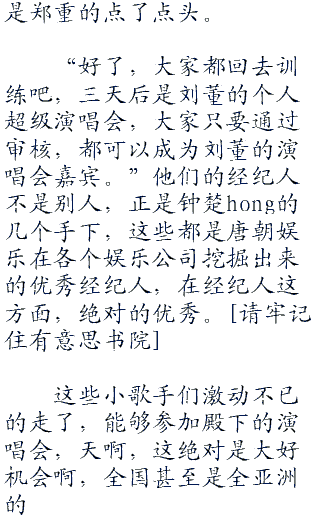 是郑重的点了点头。
“好了，大家都回去训
练吧，三天后是刘董的个人
超级演唱会，大家只要通过
审核，都可以成为刘董的演
唱会嘉宾。”他们的经纪人
不是别人，正是钟楚hong的
几个手下，这些都是唐朝娱
乐在各个娱乐公司挖掘出来
的优秀经纪人，在经纪人这
方面，绝对的优秀。[请牢记
住有意思书院]
这些小歌手们激动不已
的走了，能够参加殿下的演
唱会，天啊，这绝对是大好
机会啊，全国甚至是全亚洲
的